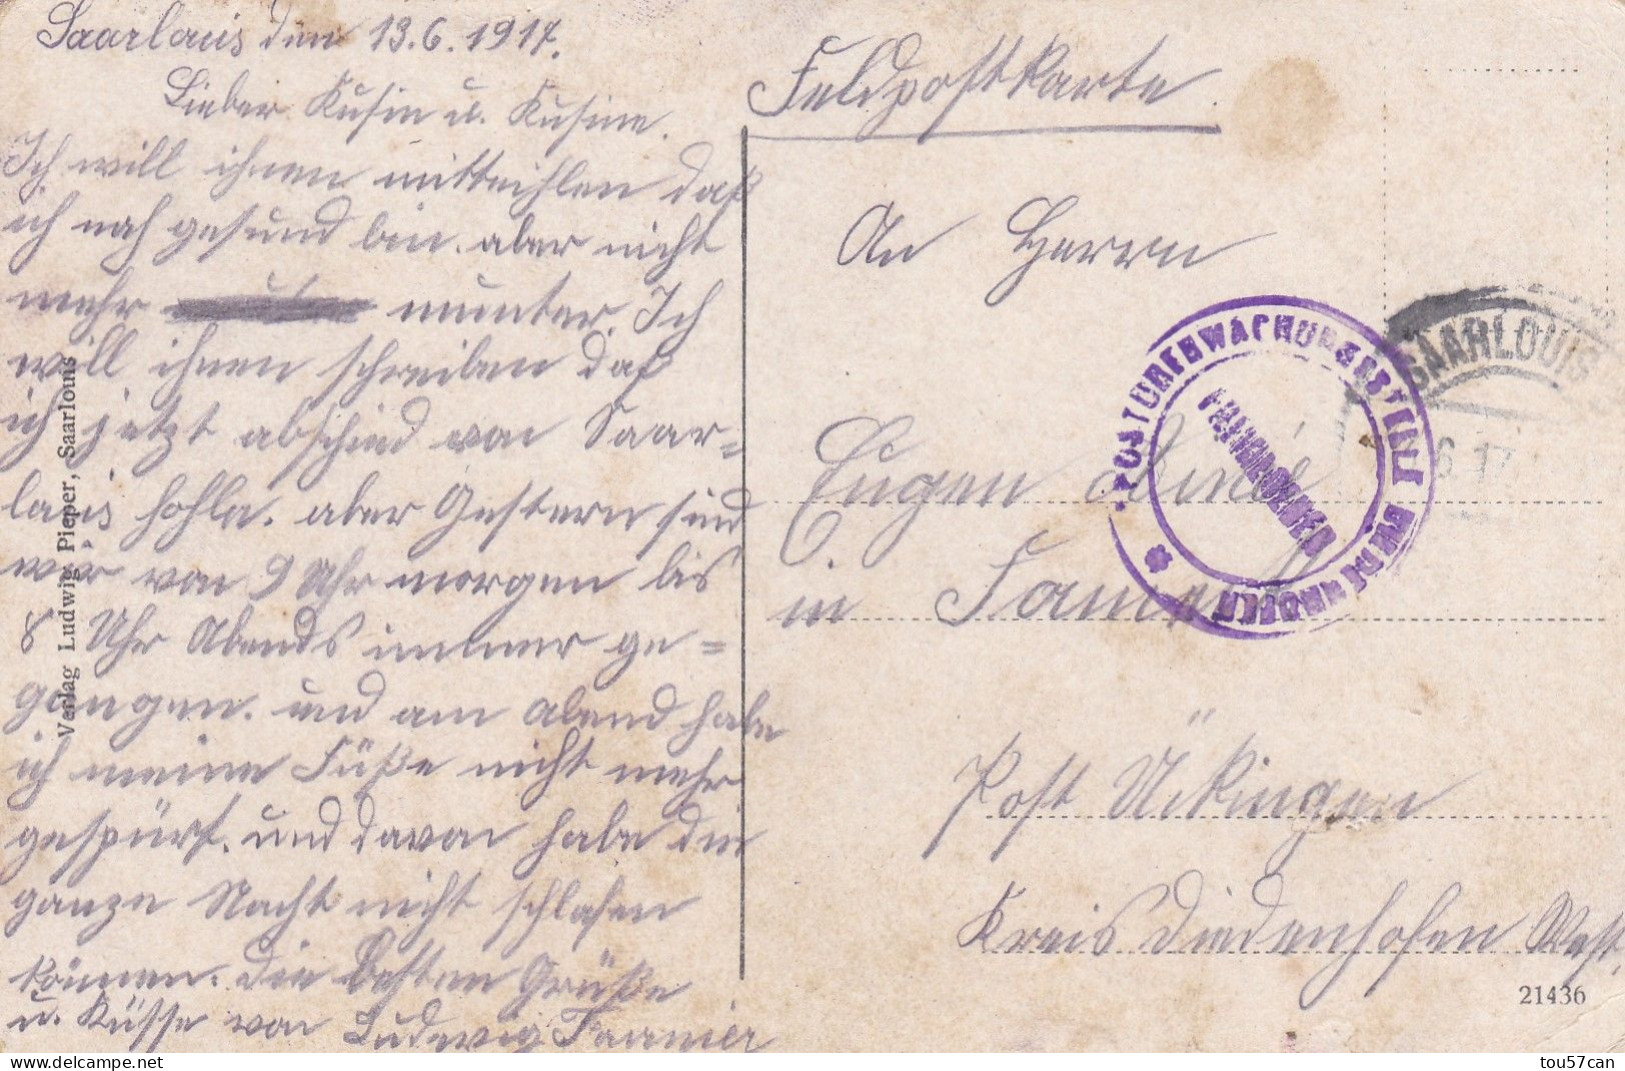 Saarlouis den 13.6.1917.
Lieber Kusin u. Kusine.
Ich will ihnen mitteihlen daß
ich noch gesund bin. aber nicht
mehr munter. Ich
will ihnen schreiben daß
ich jetzt abschied von Saar=
louis hohle. aber Gestern sind
wir von 9 Uhr morgen bis
8 Uhr Abends immer ge=
gangen. und am abend habe
ich meine Füße nicht mehr
gespürt. und davon habe die
ganze Nacht nicht schlafen
können. die besten Grüße
u. Küsse von Ludwig
Verlag Ludwig Pieper, Saarlouis
Feldpostkarte
An Herrn
Eugen
in
Post Ückingen
Kreis Diedenhofen West.
POSTÜBERWACHUNGSSTELLE DIEDENHOFEN
SAARLOUIS
6.17
21436
tou57can